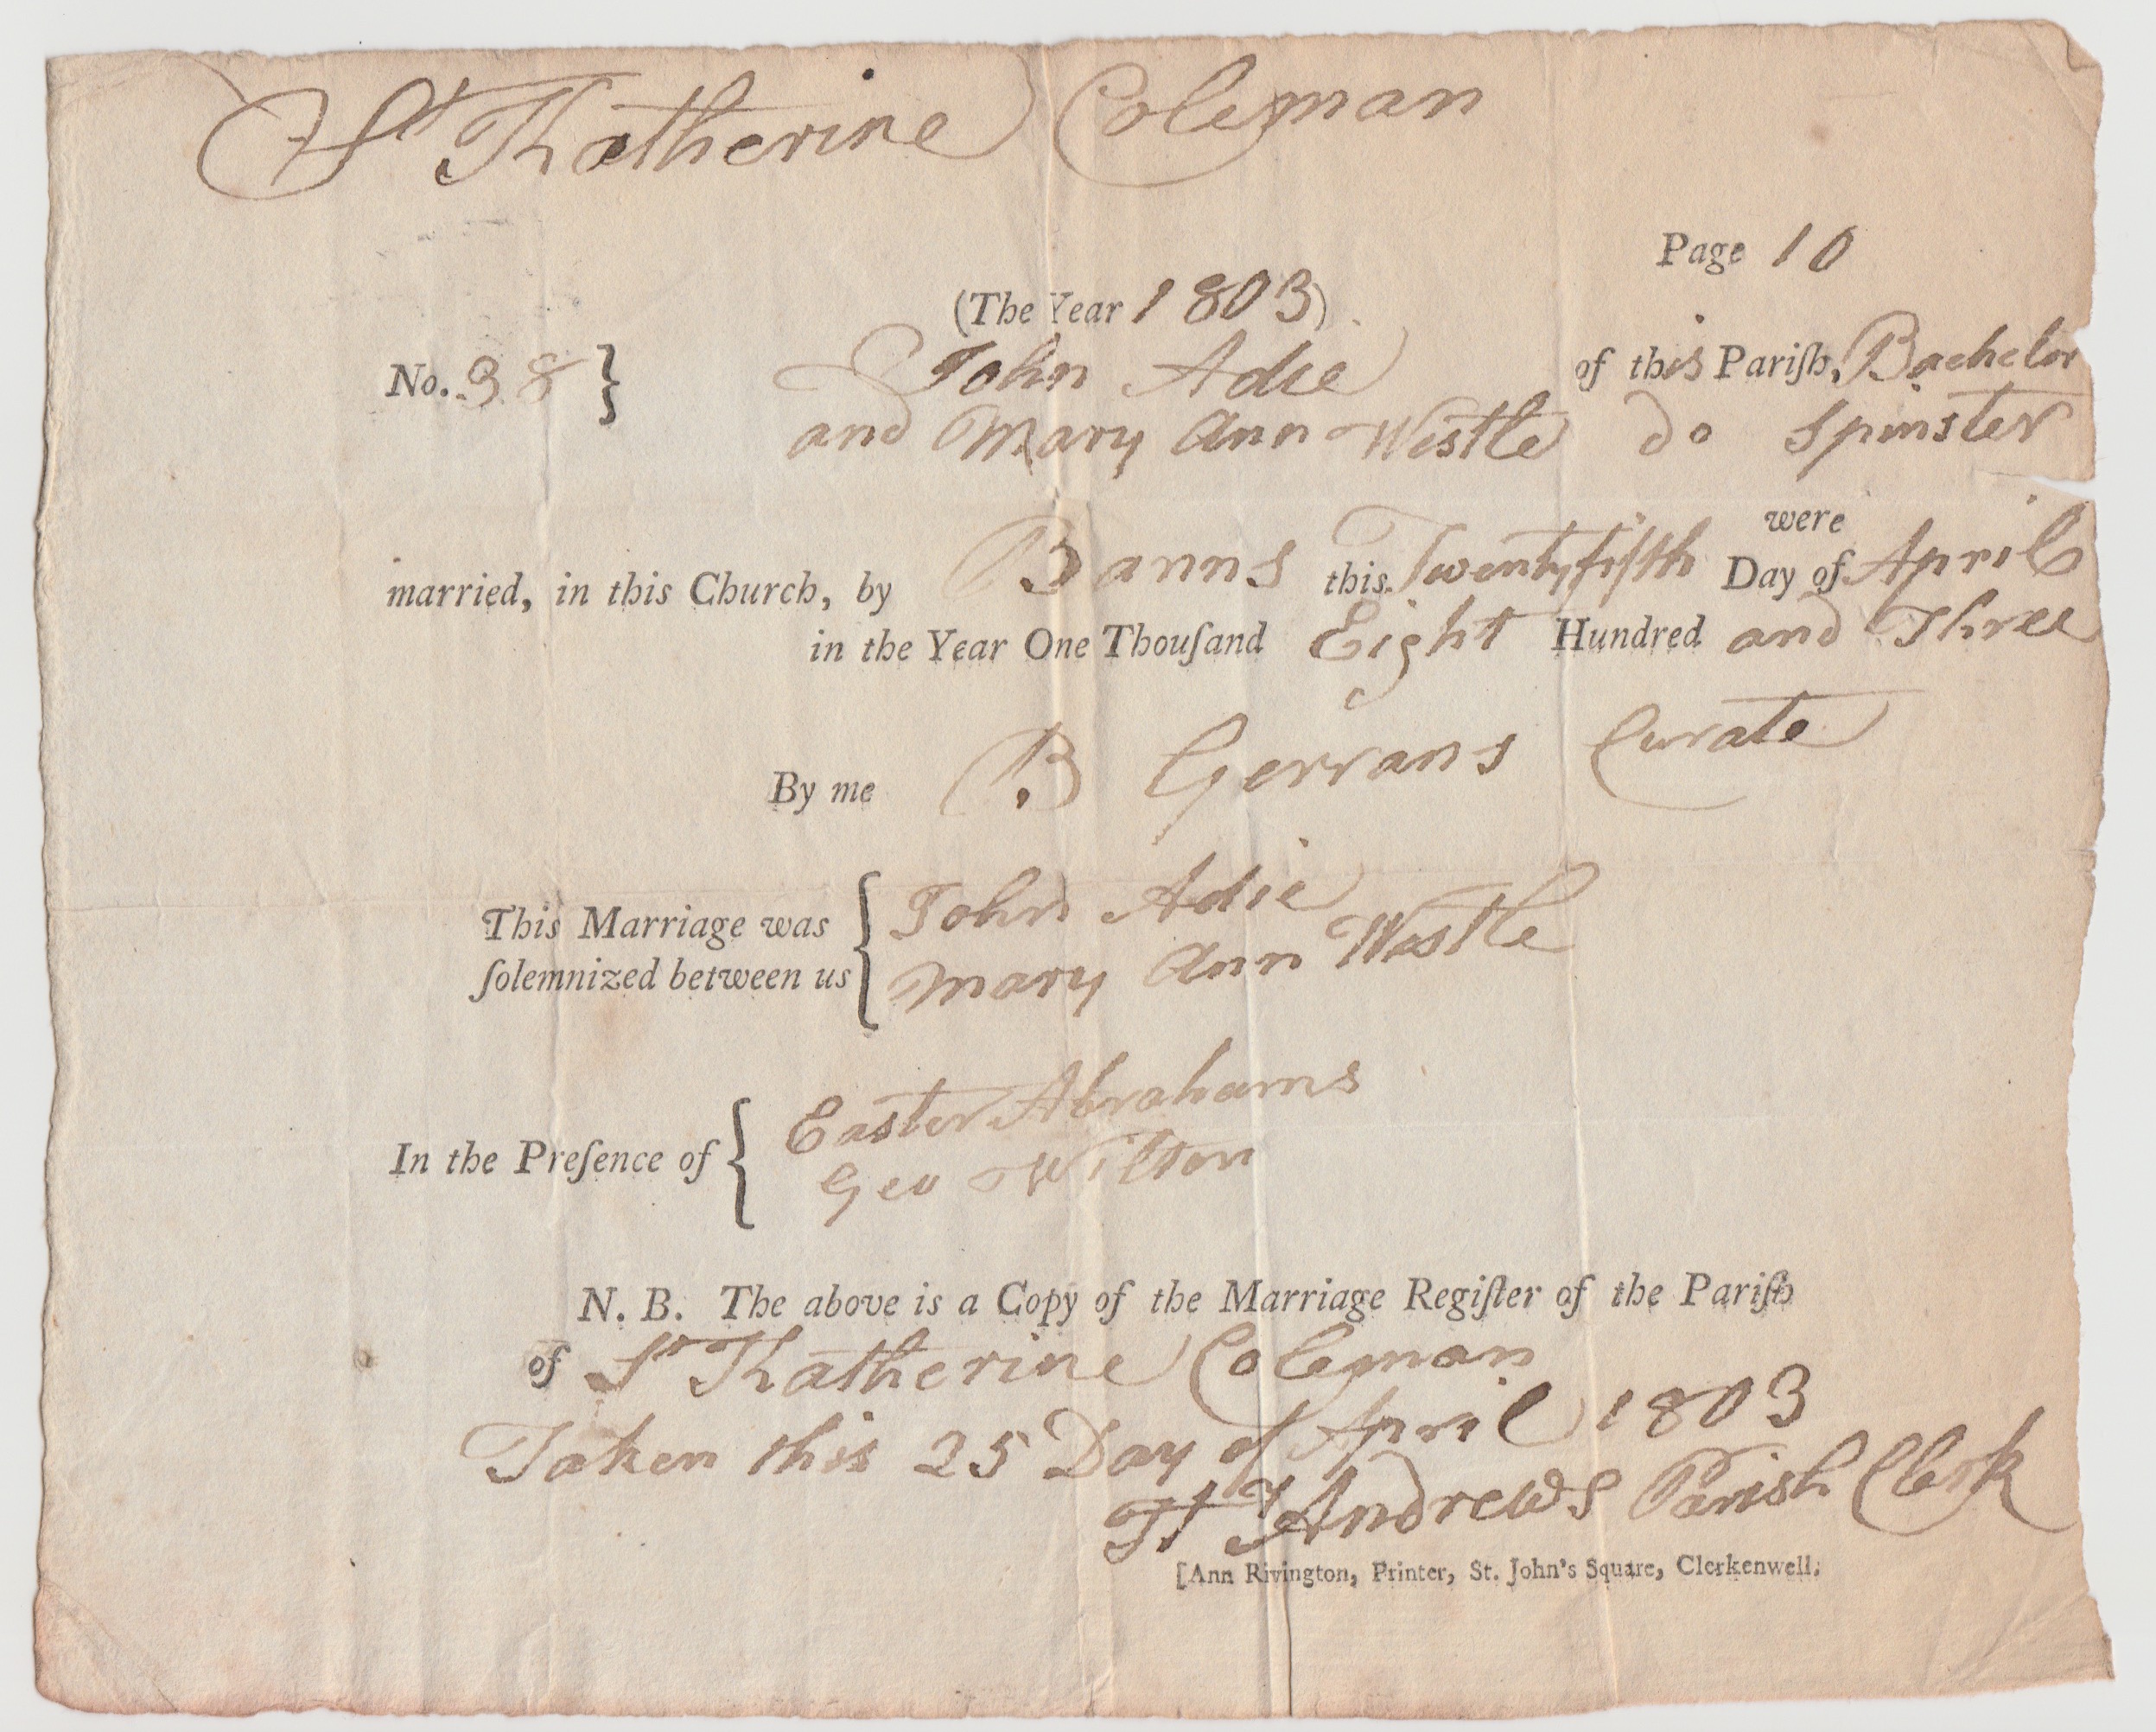 St Katherine Coleman
Page 10
(The Year 1803)
No. 38 } John Adie of this Pariſh, Bachelor
and Mary Ann Westle do Spinster
were
married, in this Church, by Banns this Twentyfifth Day of April
in the Year One Thouſand Eight Hundred and Three
By me B Gerrans Curate
This Marriage was ſolemnized between us { John Adie
Mary Ann Westle
In the Preſence of { Easter Abrahams
Geo Wilton
N. B. The above is a Copy of the Marriage Regiſter of the Pariſh
of St Katherine Coleman
Taken this 25 Day of April 1803
Andrews Parish Clerk
[Ann Rivington, Printer, St. John's Square, Clerkenwell.